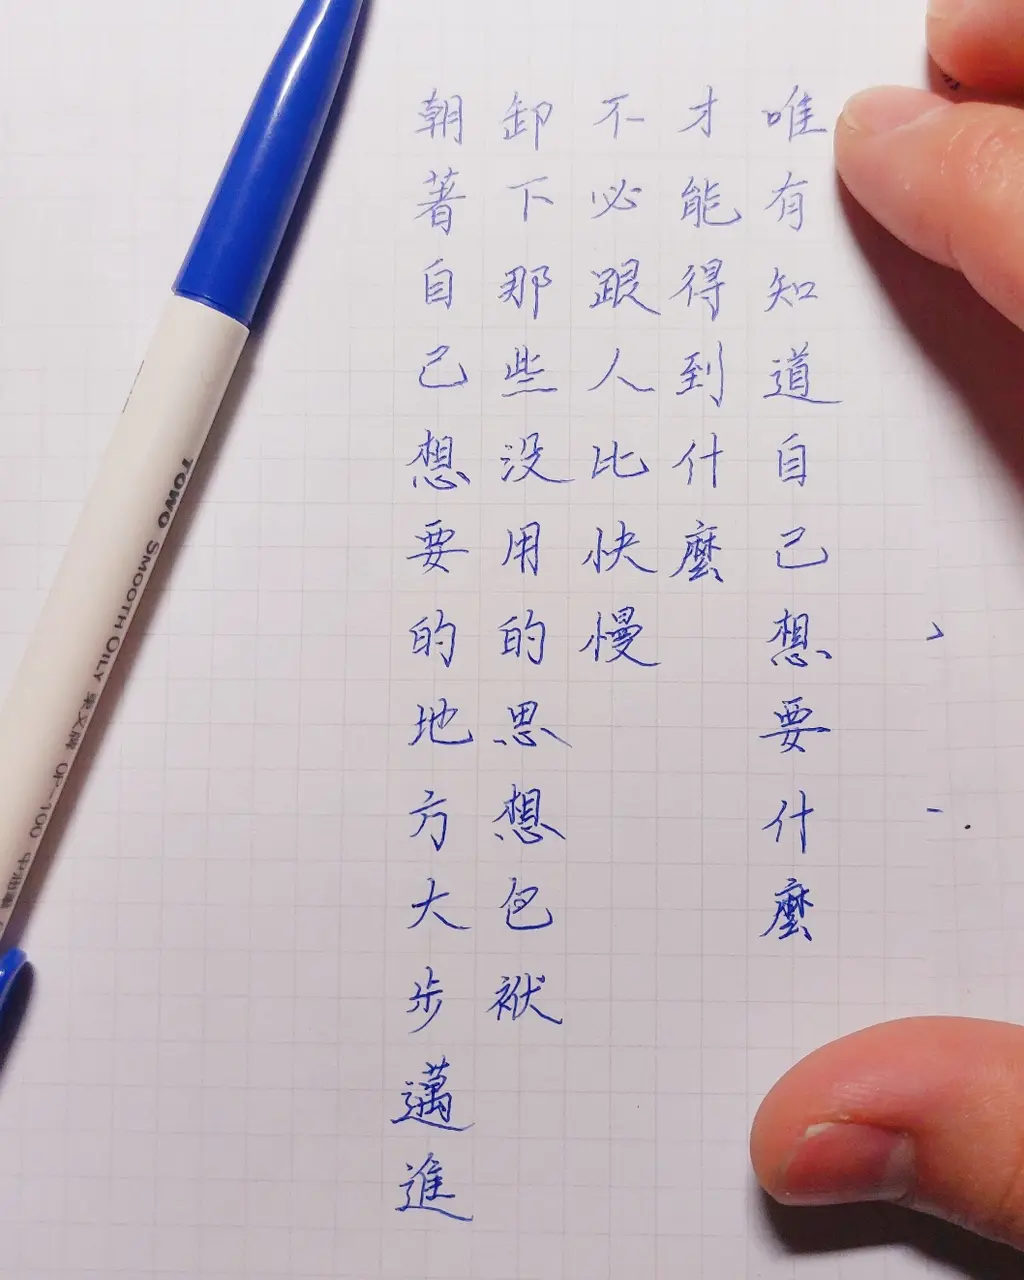 唯有知道自己想要什麼
才能得到什麼
不必跟人比快慢
卸下那些沒用的思想包袱
朝著自己想要的地方大步邁進
TOWO SMOOTH OILY 東文牌 OP-100 中油筆